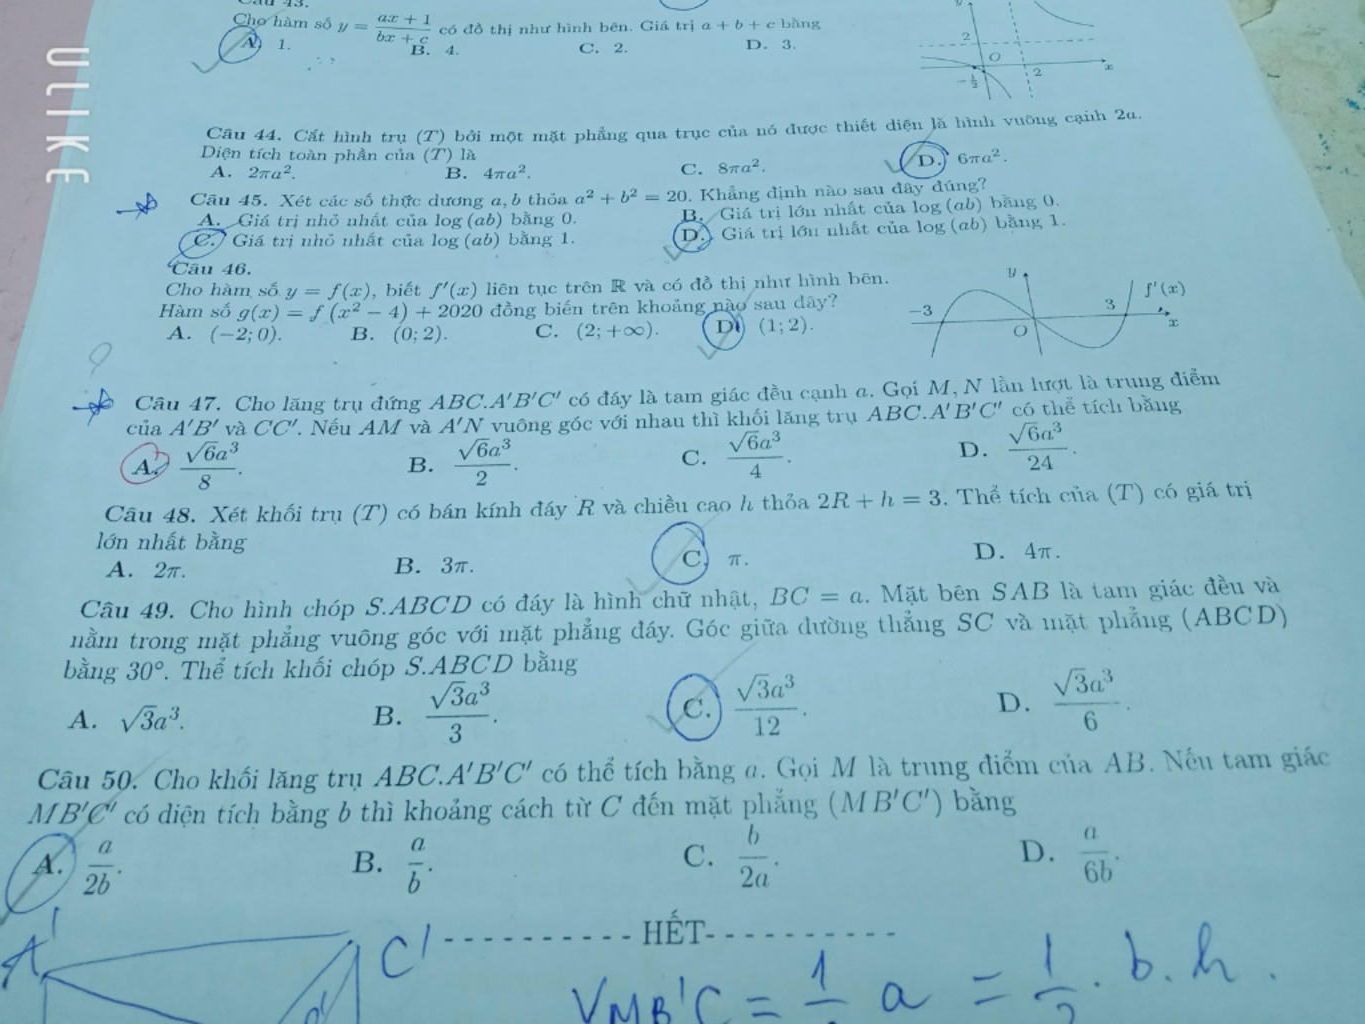 Câu 43.
Cho hàm số y = (ax + 1)/(bx + c) có đồ thị như hình bên. Giá trị a + b + c bằng
A. 1. B. 4. C. 2. D. 3.
y
2
O
2
x
-1/2
ULIKE
Câu 44. Cắt hình trụ (T) bởi một mặt phẳng qua trục của nó được thiết diện là hình vuông cạnh 2a.
Diện tích toàn phần của (T) là
A. 2πa². B. 4πa². C. 8πa². D. 6πa².
Câu 45. Xét các số thực dương a, b thỏa a² + b² = 20. Khẳng định nào sau đây đúng?
A. Giá trị nhỏ nhất của log (ab) bằng 0. B. Giá trị lớn nhất của log (ab) bằng 0.
C. Giá trị nhỏ nhất của log (ab) bằng 1. D. Giá trị lớn nhất của log (ab) bằng 1.
Câu 46.
Cho hàm số y = f(x), biết f′(x) liên tục trên ℝ và có đồ thị như hình bên.
Hàm số g(x) = f (x² − 4) + 2020 đồng biến trên khoảng nào sau đây?
A. (−2; 0). B. (0; 2). C. (2; +∞). D. (1; 2).
y
f′(x)
−3
3
O
x
Câu 47. Cho lăng trụ đứng ABC.A′B′C′ có đáy là tam giác đều cạnh a. Gọi M, N lần lượt là trung điểm
của A′B′ và CC′. Nếu AM và A′N vuông góc với nhau thì khối lăng trụ ABC.A′B′C′ có thể tích bằng
A. √6a³/8. B. √6a³/2. C. √6a³/4. D. √6a³/24.
Câu 48. Xét khối trụ (T) có bán kính đáy R và chiều cao h thỏa 2R + h = 3. Thể tích của (T) có giá trị
lớn nhất bằng
A. 2π. B. 3π. C. π. D. 4π.
Câu 49. Cho hình chóp S.ABCD có đáy là hình chữ nhật, BC = a. Mặt bên SAB là tam giác đều và
nằm trong mặt phẳng vuông góc với mặt phẳng đáy. Góc giữa đường thẳng SC và mặt phẳng (ABCD)
bằng 30°. Thể tích khối chóp S.ABCD bằng
A. √3a³. B. √3a³/3. C. √3a³/12. D. √3a³/6.
Câu 50. Cho khối lăng trụ ABC.A′B′C′ có thể tích bằng a. Gọi M là trung điểm của AB. Nếu tam giác
MB′C′ có diện tích bằng b thì khoảng cách từ C đến mặt phẳng (MB′C′) bằng
A. a/2b. B. a/b. C. b/2a. D. a/6b.
---------- HẾT----------
A'
C'
VMB'C = a = . b.h.